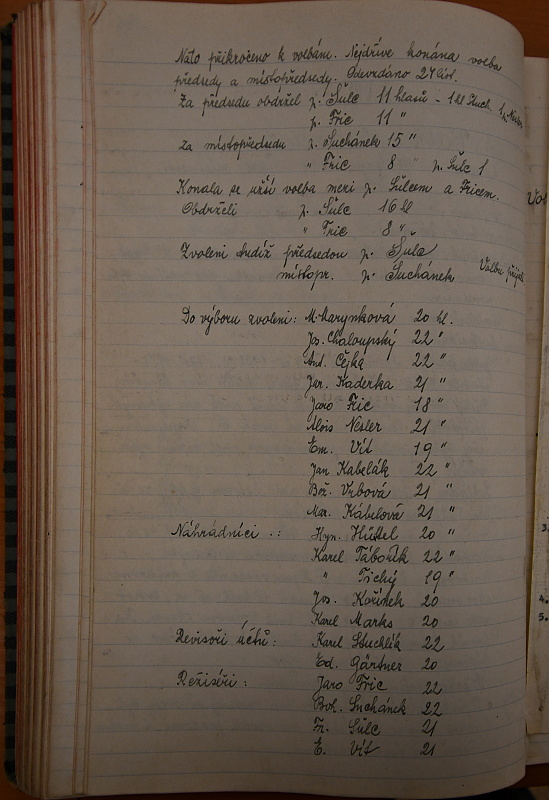 Nato přikročeno k volbám. Nejdříve konána volba
předsedy a místopředsedy. Odevzdáno 24 líst.
Za předsedu obdržel p. Šulc 11 hlasů - 1 hl Such.
p. Fric 11 "
za místopředsedu p. Suchánek 15 "
" Fric 8 " p. Šulc 1
Konala se užší volba mezi p. Šulcem a Fricem.
Obdrželi p. Šulc 16 hl
" Fric 8 "
Zvoleni tudíž předsedou p. Šulc
místopr. p. Suchánek Volbu přijali
Do výboru zvoleni: M. Marynková 20 hl.
Jos. Chaloupský 22 "
Ant. Čejka 22 "
Jar. Kaderka 21 "
Jaro Fric 18 "
Alois Nesler 21 "
Em. Vít 19 "
Jan Kabelák 22 "
Bož. Vrbová 21 "
Mar. Kábelová 21 "
Náhradníci .: Hyn. Hüttel 20 "
Karel Táborík 22 "
" Tichý 19 "
Jos. Kořínek 20
Karel Marks 20
Revisoři účtů: Karel Stuchlík 22
Ed. Gärtner 20
Režiséři: Jaro Fric 22
Boh. Suchánek 22
Fr. Šulc 21
E. Vít 21
4.
5.